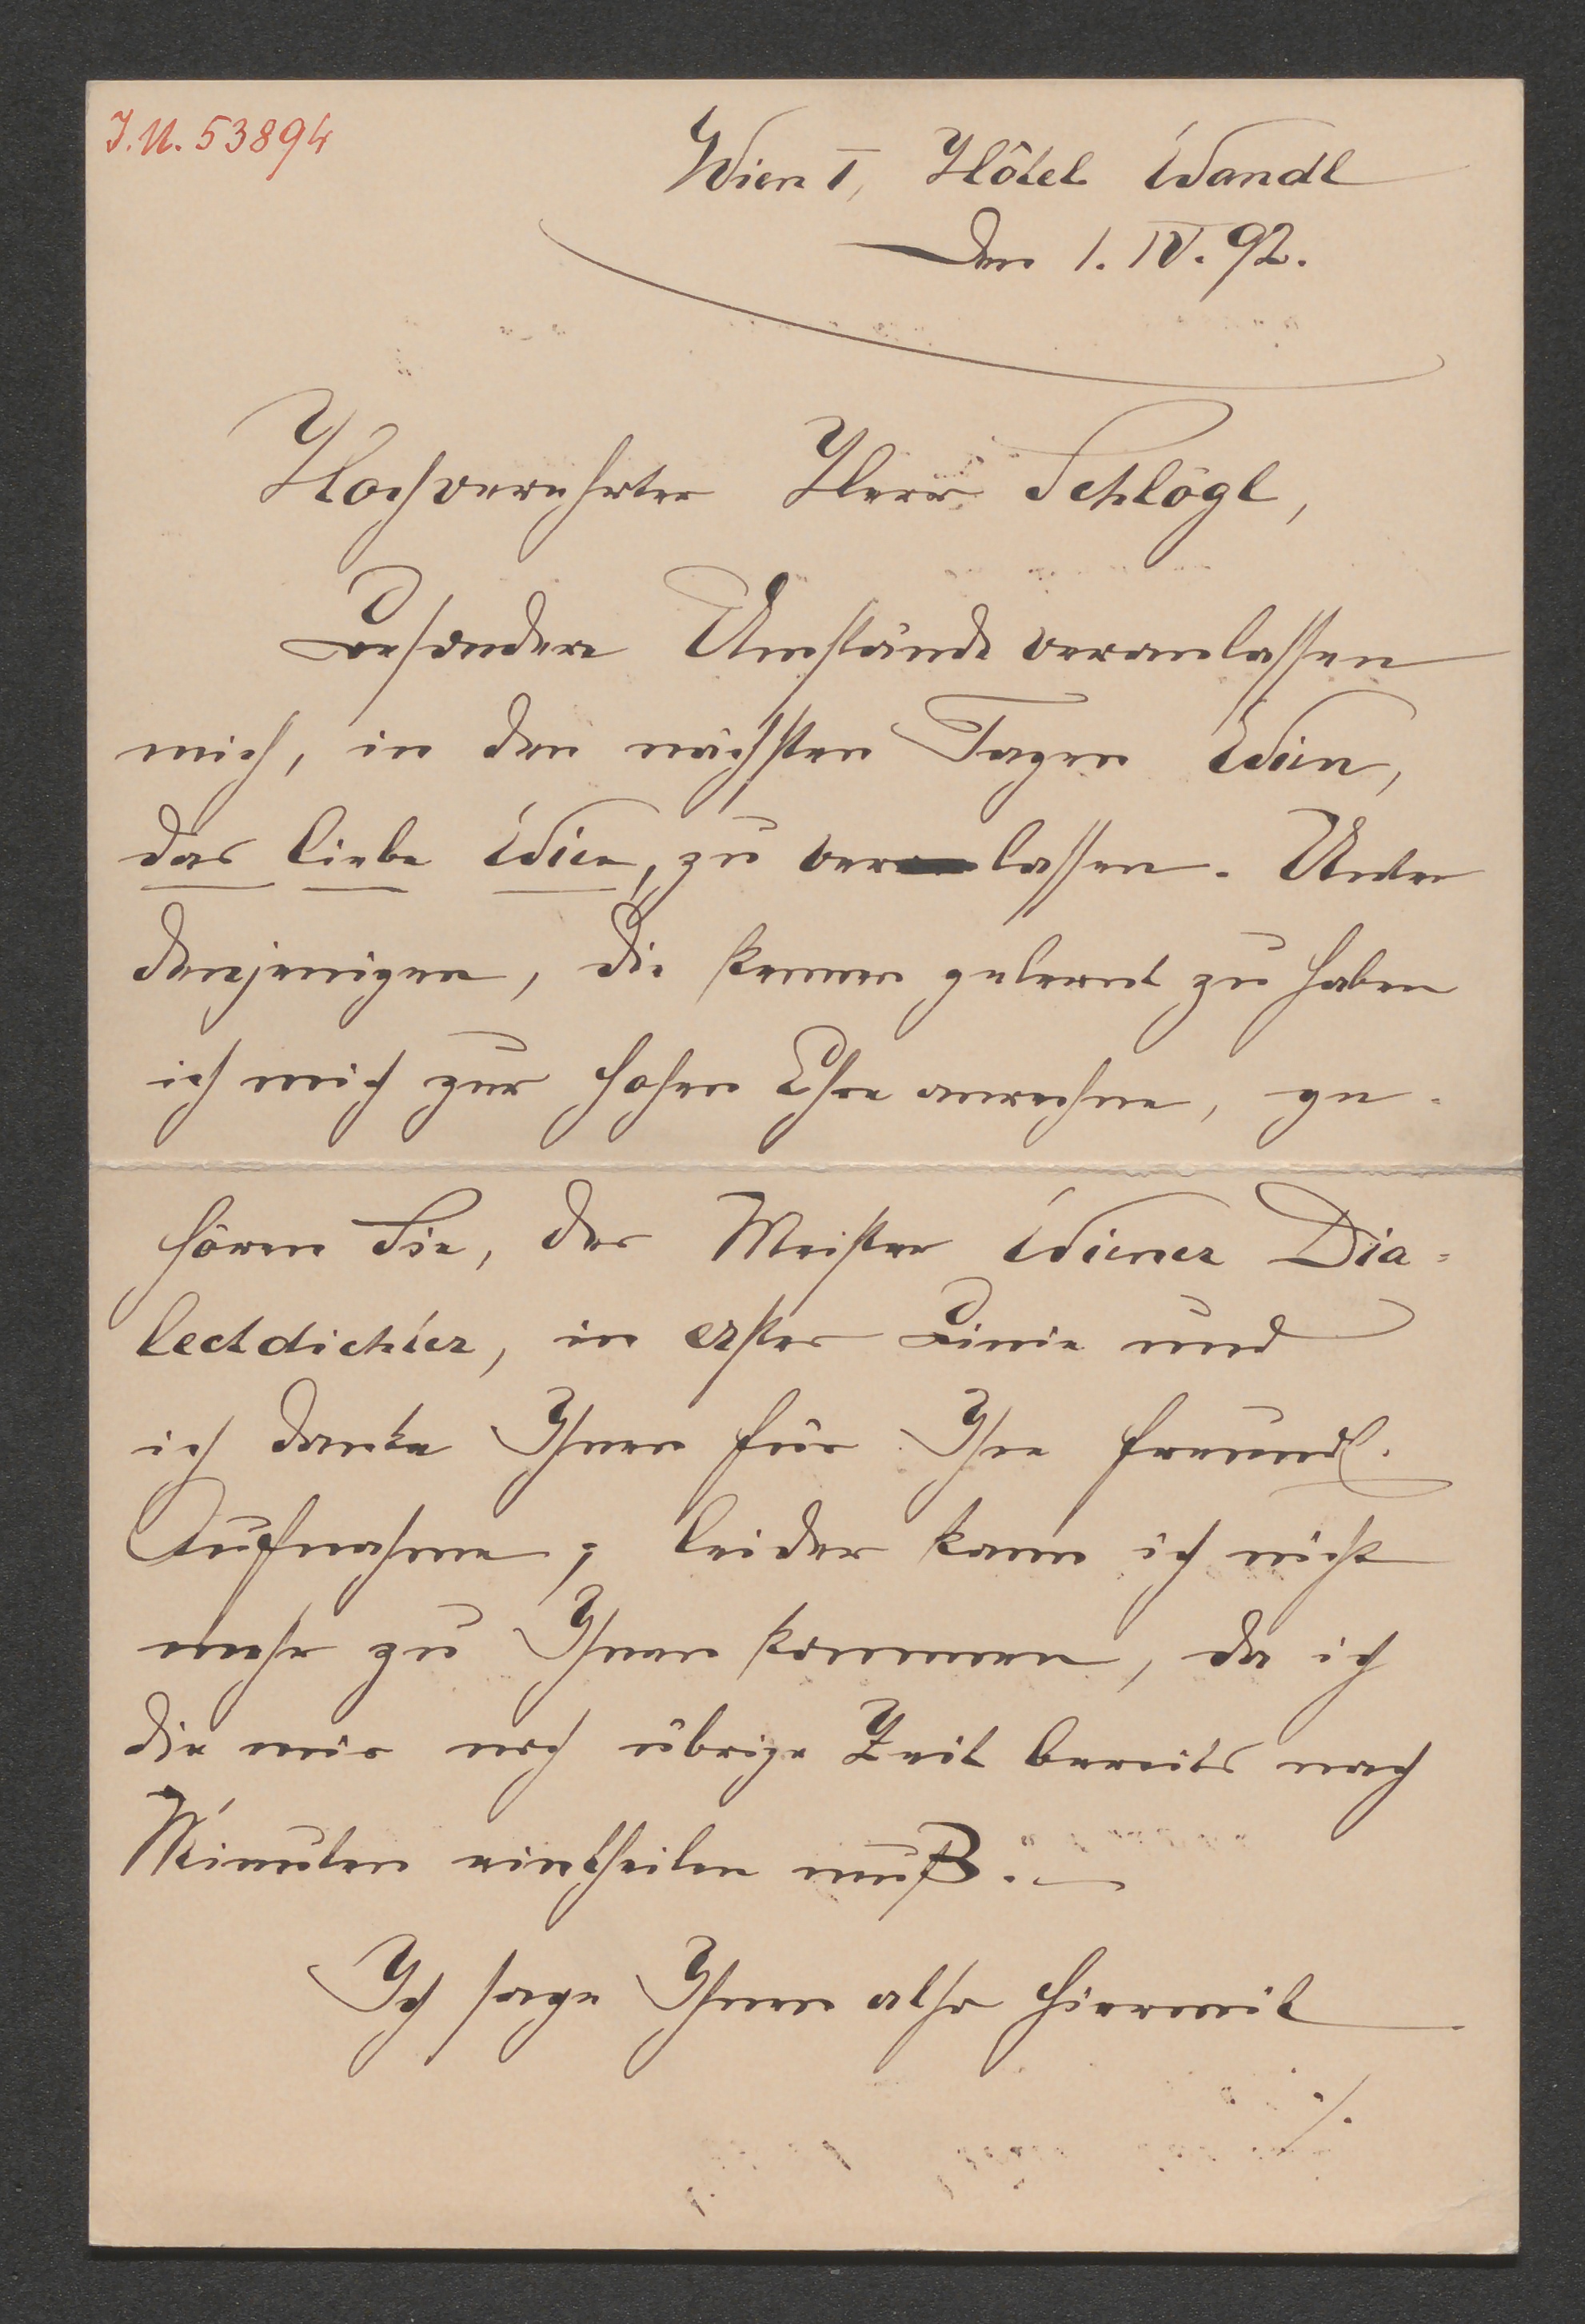 J.N. 53894
Wien I, Hôtel Wandl
den 1. IV. 92.
Hochverehrter Herr Schlögl,
Besondere Umstände veranlassen
mich, in den nächsten Tagen Wien,
das liebe Wien, zu verlassen. Unter
denjenigen, die kennen gelernt zu haben
ich mich zur hohen Ehre anrechne, ge-
hören Sie, der Meister Wiener Dia-
lectdichter, in erster Linie und
ich danke Ihnen für Ihre freundl.
Aufnahme; leider kann ich nicht
mehr zu Ihnen kommen, da ich
die mir noch übrige Zeit bereits nach
Minuten eintheilen muß. —
Ich sage Ihnen also hiermit
./.